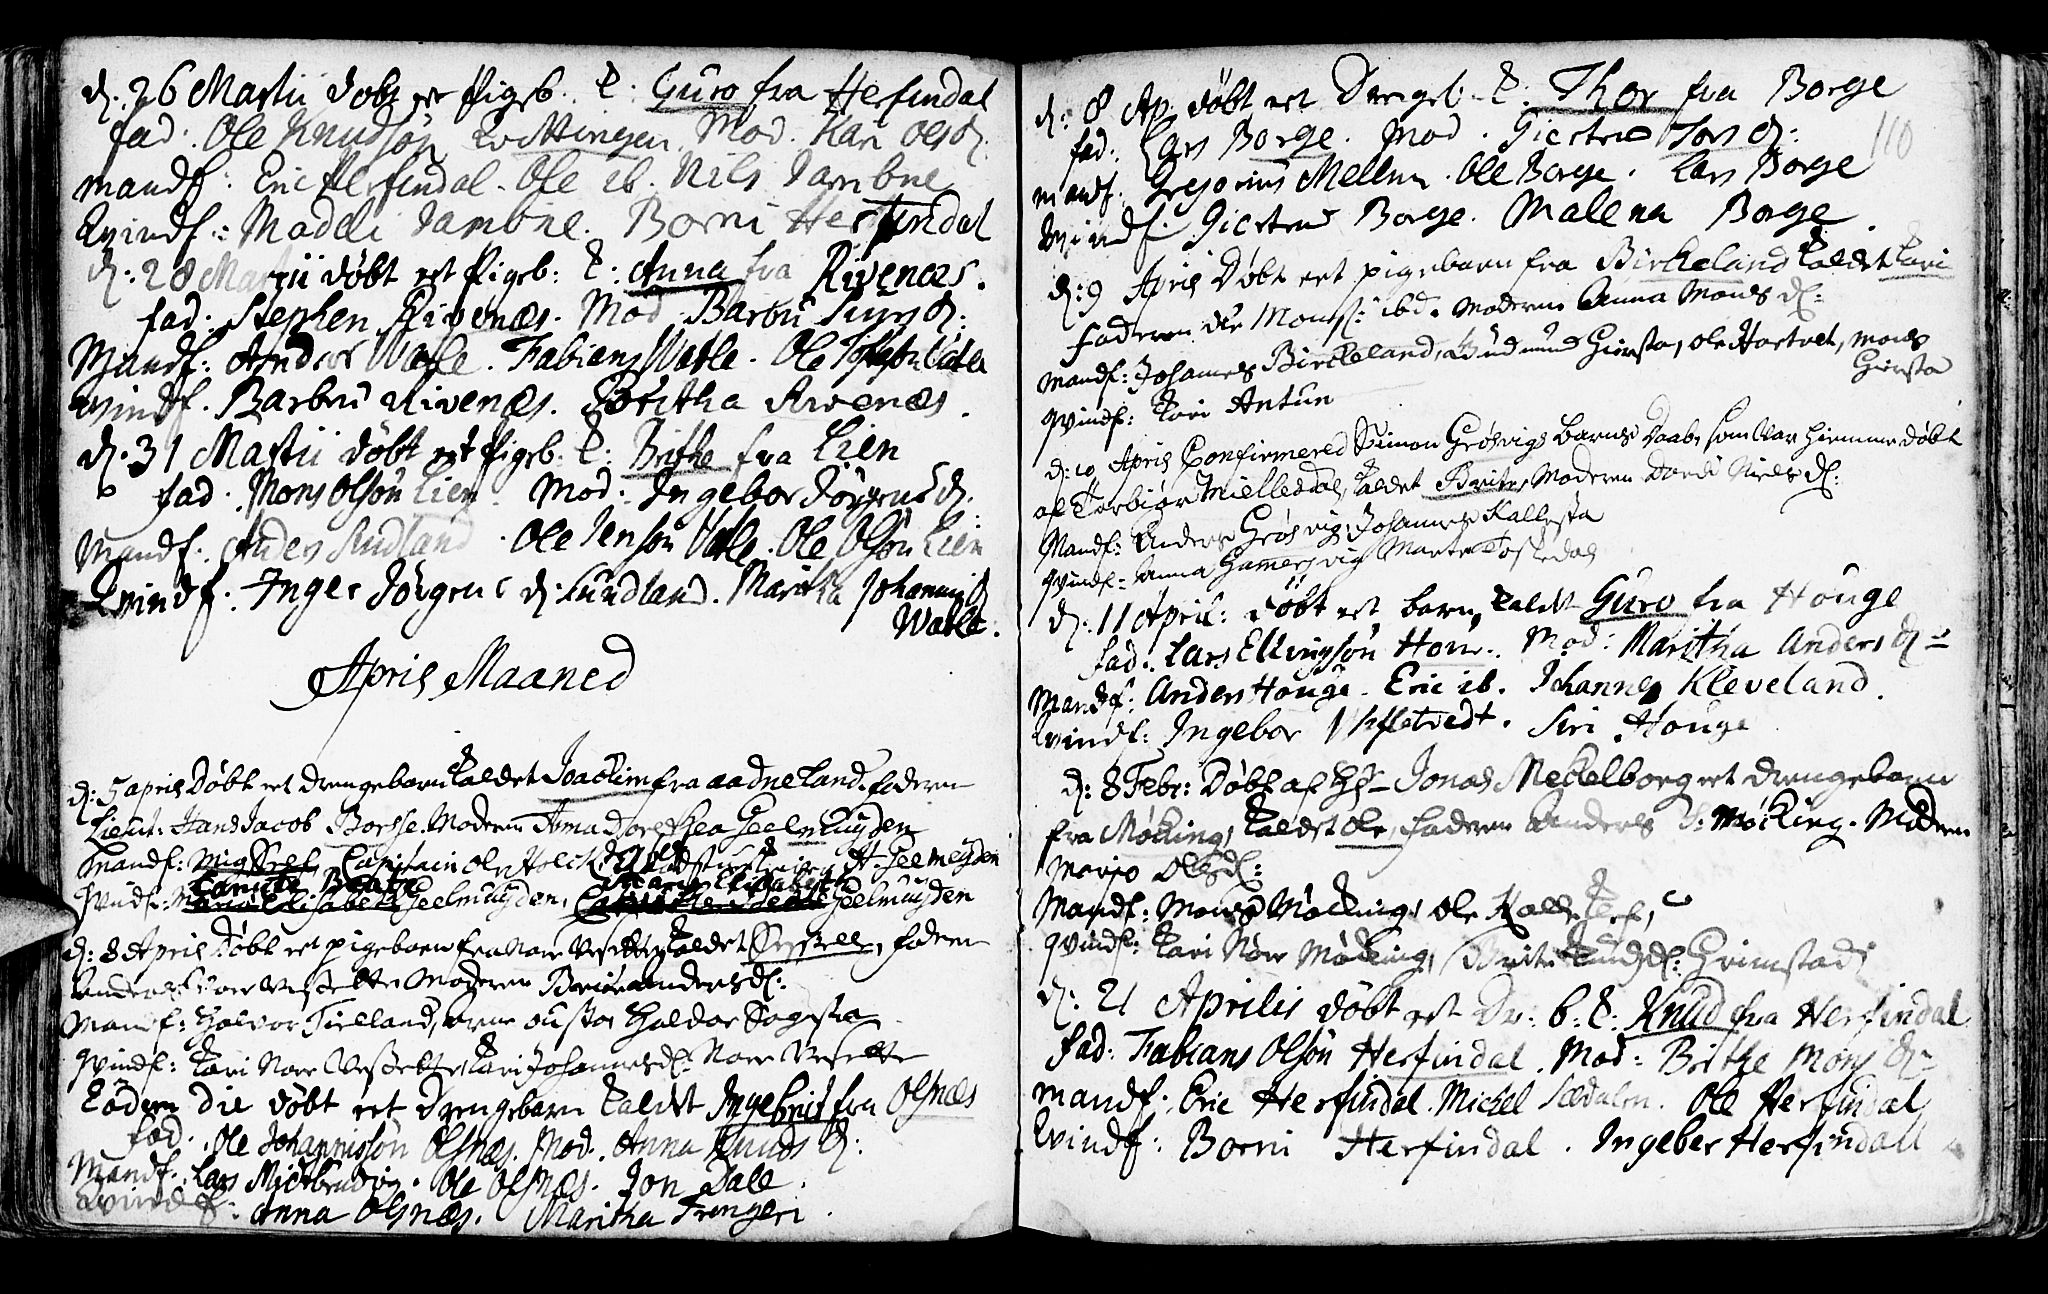 d: 26 Martii døbt et Pigeb. k: Guro fra Herfindal
fad: Ole Knudsøn Rottingen. Mod. Kari Olsd.
mandf: Eric Herfindal. Ole ib. Nils Jambne
Kvindf: Madeli Jambne. Borni Herfindal
d: 28 Martii døbt et Pigeb: k: Anna fra Rivenæs.
fad: Stephen Rivenæs. Mod Barbru
Mandf: Anders Watle. Fabians Watle. Ole
Kvindf. Barbru Rivenæs. Boritha Rivenæs.
d. 31 Martii døbt et Pigeb. k: Brithe fra Lien
fad. Mons Olsøn Lien. Mod: Ingebor Jørgens d.
Mandf: Anders Sudland. Ole Jensøn Watle. Ole Olsøn Lien
Kvindf: Inger Jørgens d: Sundland. Maritha Johannis d
Watle.
April Maaned
d: 5 april Døbt et drengebarn kaldet Joachim fra aadneland. faderen
Lieut: Hans Jacob Borsse. Moderen Anna Dorethea Geelmuyden
mandf: Capitain Ole Holck H. Geelmeyden
qvindf: Geelmuyden, Geelmuyden
d: 8 April Døbt et pigebarn fra Norr kaldet faderen
Anders Moderen Anders d:
Mandf: Halvor Tielland, Arne Haldor Sogsta
qvindf: Kari Norr Kari Johannes d: Norr
Eodem die døbt et Drengebarn kaldet Ingebrit fra Olsnæs
fad. Ole Johannissøn Olsnæs. Mod. Anna Knuds d:
Mandf. Lars Midtbrudvig. Ole Olsnæs. Jon Dale.
Kvindf: Anna Olsnæs. Maritha Frøngeri.
d: 8 Ap. døbt et Drengeb. k: Thor fra Borge
110
fad: Lars Borge. Mod. Giertrud Lars d:
mandf: Gregorius Mellum. Ole Borge. Lars Borge
Kvindf. Giertrud Borge. Malena Borge.
d: 9 April Døbt et pigebarn fra Birkeland kaldet Kari
Faderen Ole Mons: ibd. Moderen Anna Mons d:
Mandf: Johannes Birckeland, Gudmund Giersta, Ole Hartvet, Mons
Giersta
qvindf: Kari Antun
d: 10 April Confirmered Simon Grøsvigs Barns Daab, som var hiemme døbt
af Torbiør Mielledal, kaldet Brite, Moderen Dordi Niels d:
Mandf: Anders Grøsvig, Johannes Kallesta
qvindf: Anna Hamersvig Marte Tostedal
d: 11 April: døbt et barn kaldet Guro fra Houge
fad. Lars Ellingsøn Houg. Mod: Maritha Anders d:
Mandf: Anders Houge. Eric ib. Johannes Kleveland.
Kvindf: Ingebor. Siri Houge
d: 8 Febr: Døbt af Hr Jonas Meckelborg et drengebarn
fra Møcking, kaldet Ole, faderen Anders Møcking. Moderen
Marjo Olsd:
Mandf: Mons Møcking, Ole
qvindf: Kari Norr Møcking, Brite Knudsd: Grimstad
d: 21 Aprilis døbt et Dr: b: k: Knud fra Herfindal
fad: Fabians Olsøn Herfindal. Mod: Brithe Mons d:
mandf: Eric Herfindal. Michel Sædalen. Ole Herfindal
Kvindf: Borni Herfindal. Ingebor Herfindall